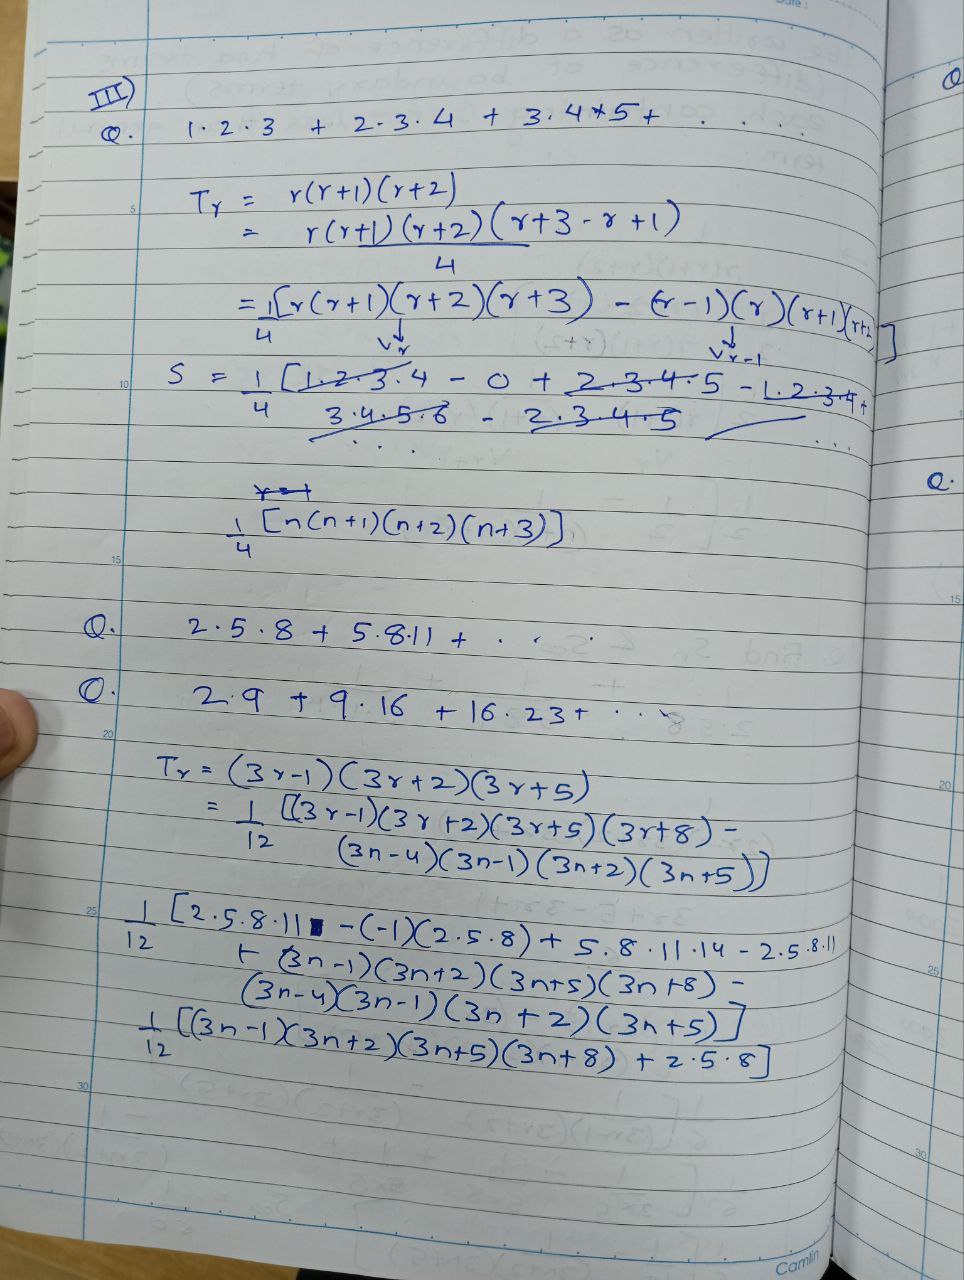 III)
Q. 1·2·3 + 2·3·4 + 3·4*5+ . . . .
Tr = r(r+1)(r+2)
= r(r+1)(r+2)(r+3-r+1)
4
= 1/4 [r(r+1)(r+2)(r+3) - (r-1)(r)(r+1)(r+2)]
Vr Vr-1
S = 1/4 [1·2·3·4 - 0 + 2·3·4·5 - 1·2·3·4+
3·4·5·6 - 2·3·4·5
. . . . . .
r=1
1/4 [n(n+1)(n+2)(n+3)]
Q. 2·5·8 + 5·8·11 + . . .
Q. 2·9 + 9·16 + 16·23+ . . .
Tr = (3r-1)(3r+2)(3r+5)
= 1/12 [(3r-1)(3r+2)(3r+5)(3r+8) -
(3n-4)(3n-1)(3n+2)(3n+5)]
1/12 [2·5·8·11 -(-1)(2·5·8) + 5·8·11·14 - 2·5·8·11
+ (3n-1)(3n+2)(3n+5)(3n+8) -
(3n-4)(3n-1)(3n+2)(3n+5)]
1/12 [(3n-1)(3n+2)(3n+5)(3n+8) + 2·5·8]
5
10
15
20
25
30
Camlin
Date :
Q
Q.
15
20
25
30